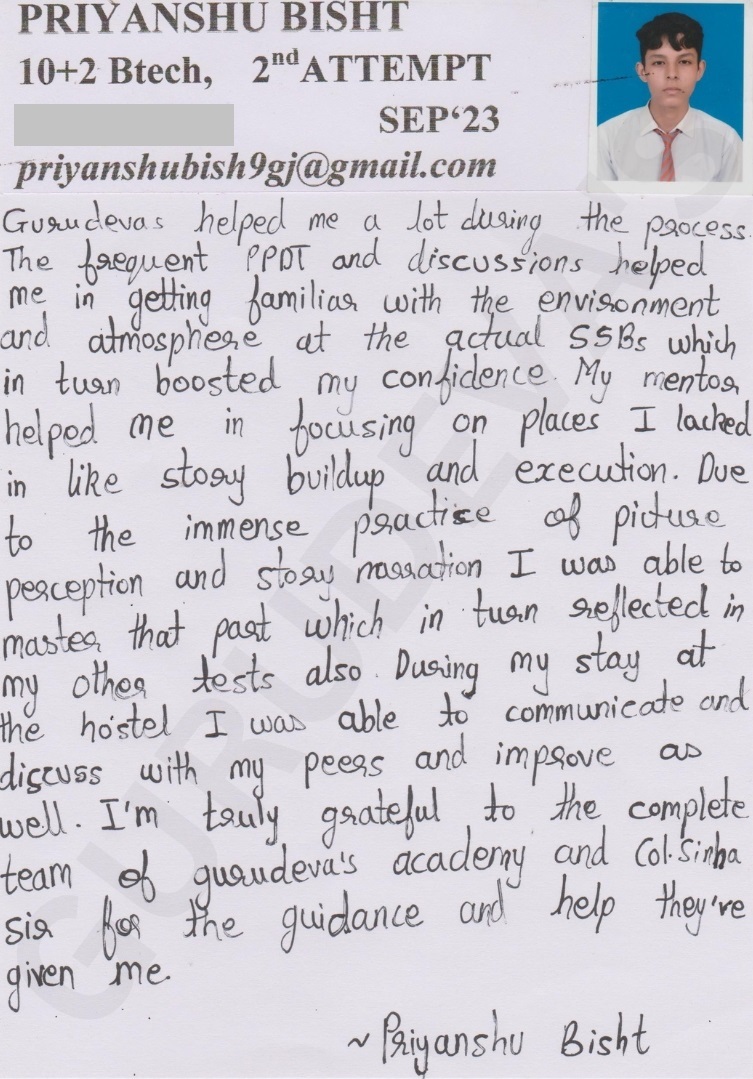 PRIYANSHU BISHT
10+2 Btech, 2nd ATTEMPT
SEP‘23
priyanshubish9gj@gmail.com
Gurudevas helped me a lot during the process.
The frequent PPDT and discussions helped
me in getting familiar with the environment
and atmosphere at the actual SSBs which
in turn boosted my confidence. My mentor
helped me in focusing on places I lacked
in like story buildup and execution. Due
to the immense practise of picture
perception and story narration I was able to
master that part which in turn reflected in
my other tests also. During my stay at
the hostel I was able to communicate and
discuss with my peers and improve as
well. I'm truly grateful to the complete
team of gurudeva's academy and Col. Sinha
sir for the guidance and help they've
given me.
~ Priyanshu Bisht
GURUDEVA'S